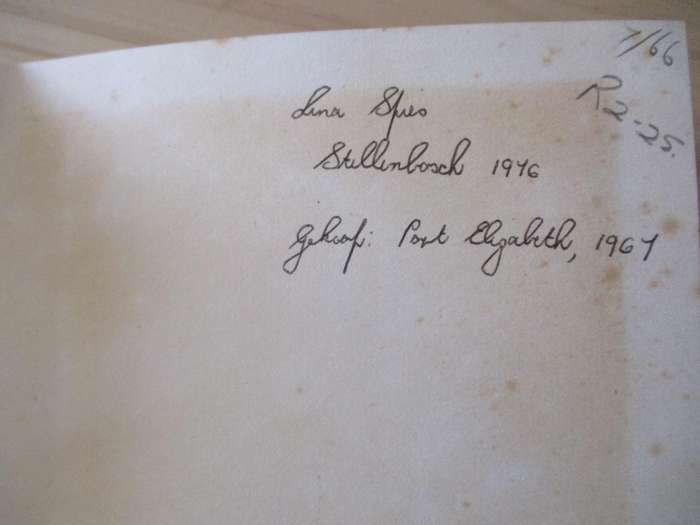 7/66
R2-25.
Lina Spies
Stellenbosch 1976
Gekoop: Port Elizabeth, 1967